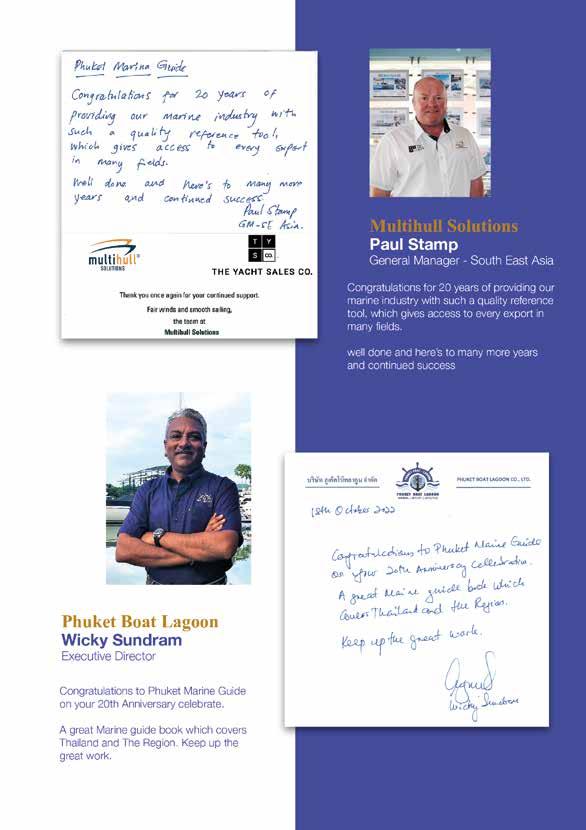 Phuket Marina Guide
Congratulations for 20 years of
providing our marine industry with
such a quality reference tool,
which gives access to every expert
in many fields.
Well done and here's to many more
years and continued success.
Paul Stamp
GM-SE Asia.
multihull
SOLUTIONS
T Y
S CO.
THE YACHT SALES CO.
Thank you once again for your continued support.
Fair winds and smooth sailing,
the team at
Multihull Solutions
Multihull Solutions
Paul Stamp
General Manager - South East Asia
Congratulations for 20 years of providing our
marine industry with such a quality reference
tool, which gives access to every export in
many fields.
well done and here's to many more years
and continued success
Phuket Boat Lagoon
Wicky Sundram
Executive Director
Congratulations to Phuket Marine Guide
on your 20th Anniversary celebrate.
A great Marine guide book which covers
Thailand and The Region. Keep up the
great work.
บริษัท ภูเก็ตโบ๊ทลากูน จำกัด
PHUKET BOAT LAGOON
PHUKET BOAT LAGOON CO., LTD.
18th October 2022
Congratulations to Phuket Marine Guide
on your 20th Anniversary Celebration.
A great Marine guide book which
Covers Thailand and the Region.
Keep up the great work.
Wicky Sundram